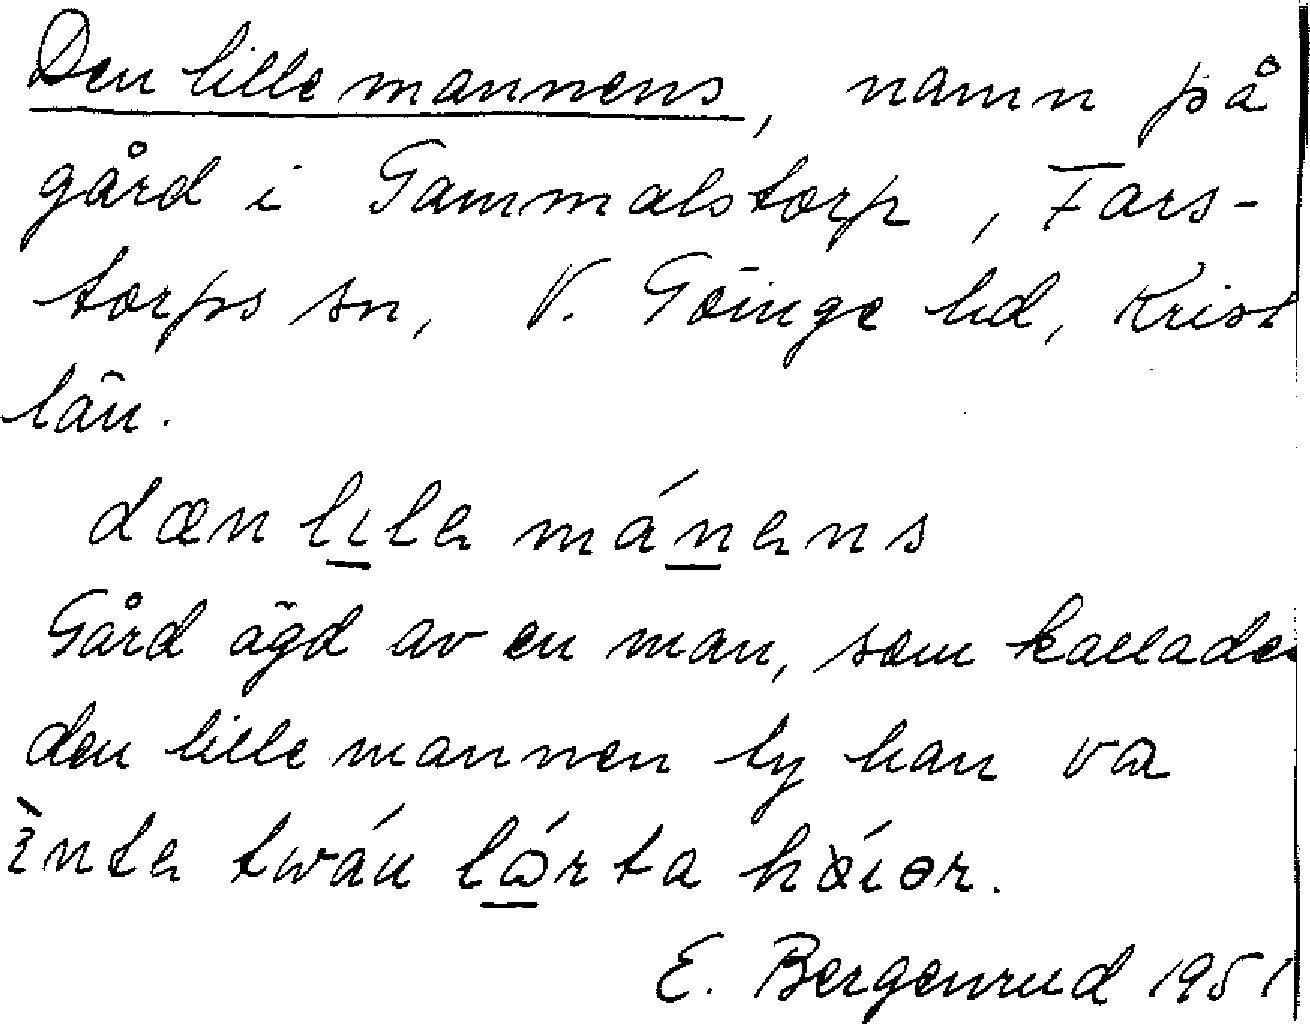 Den lille mannens, namn på
gård i Gammalstorp, Fars-
torps sn, V. Göinge hd, Krist
län.
dæn lıle mánens
Gård ägd av en man, som kallades
den lille mannen ty han va
inte twáu lɷ́rta
E. Bergenrud 1951